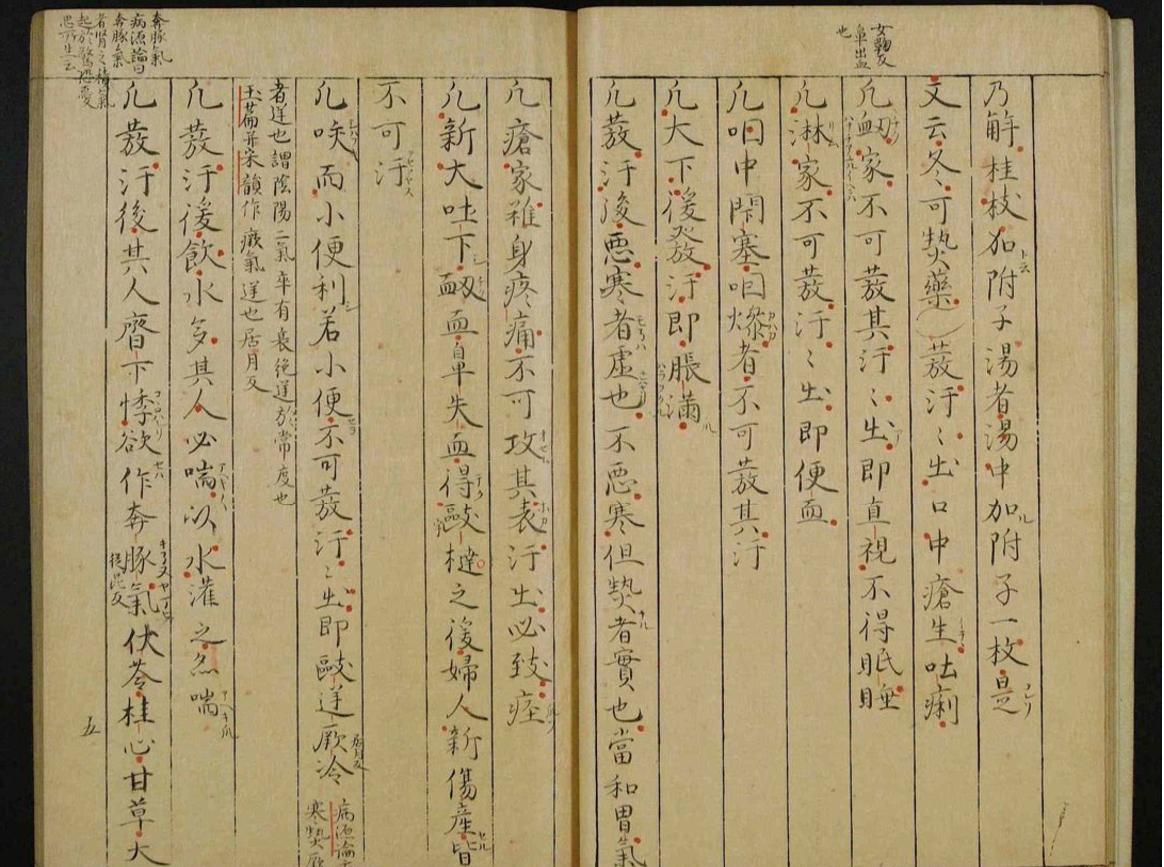 女鞠反
鼻出血
也
乃解桂枝加附子湯者湯中加附子一枚是
文云冬可熱藥發汗〻出口中瘡生吐痢
凡衂家不可發其汗〻出即直視不得眠睡
凡淋家不可發汗〻出即便血
凡咽中閇塞咽燥者不可發其汗
凡大下後發汗即脹滿
凡發汗後惡寒者虛也不惡寒但熱者實也當和胃氣
凡瘡家雖身疼痛不可攻其表汗出必致痙
凡新大吐下衂血鼻失血得毆檛之後婦人新傷產皆
不可汗
凡咳而小便利若小便不可發汗〻出即毆逆厥冷
病源論
寒熱厥
者逆也謂陰陽二氣卒有衰絕逆於常度也
玉篇并宋韻作瘚氣逆也居月反
凡發汗後飲水多其人必喘以水灌之亦喘
凡發汗後其人臍下悸欲作奔豚氣伏苓桂心甘草大
奔豚氣
病源論曰
奔豚氣
者腎之積氣
起於驚恐憂
思所生云
五